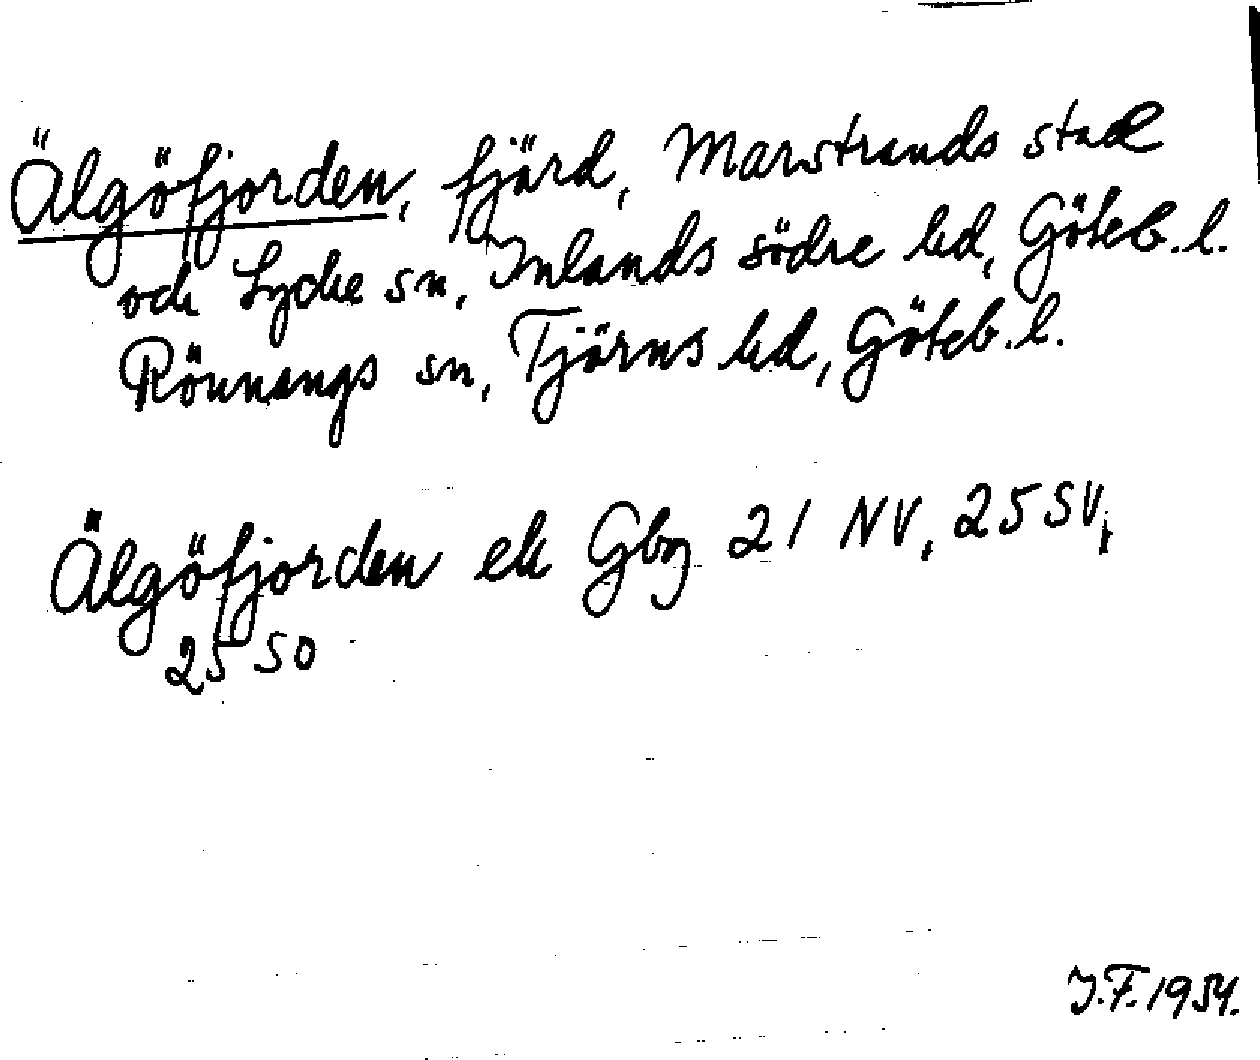 Älgöfjorden, fjärd, Marstrands stad
och Lycke sn, Inlands södre hd, Göteb. l.
Rönnangs sn, Tjörns hd, Göteb. l.
Älgöfjorden ek Gbg 21 NV, 25 SV,
25 SO
J.F. 1954.